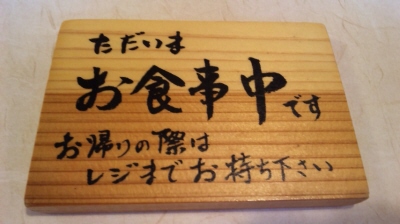 ただいま
お食事中です
お帰りの際は
レジまでお持ち下さい